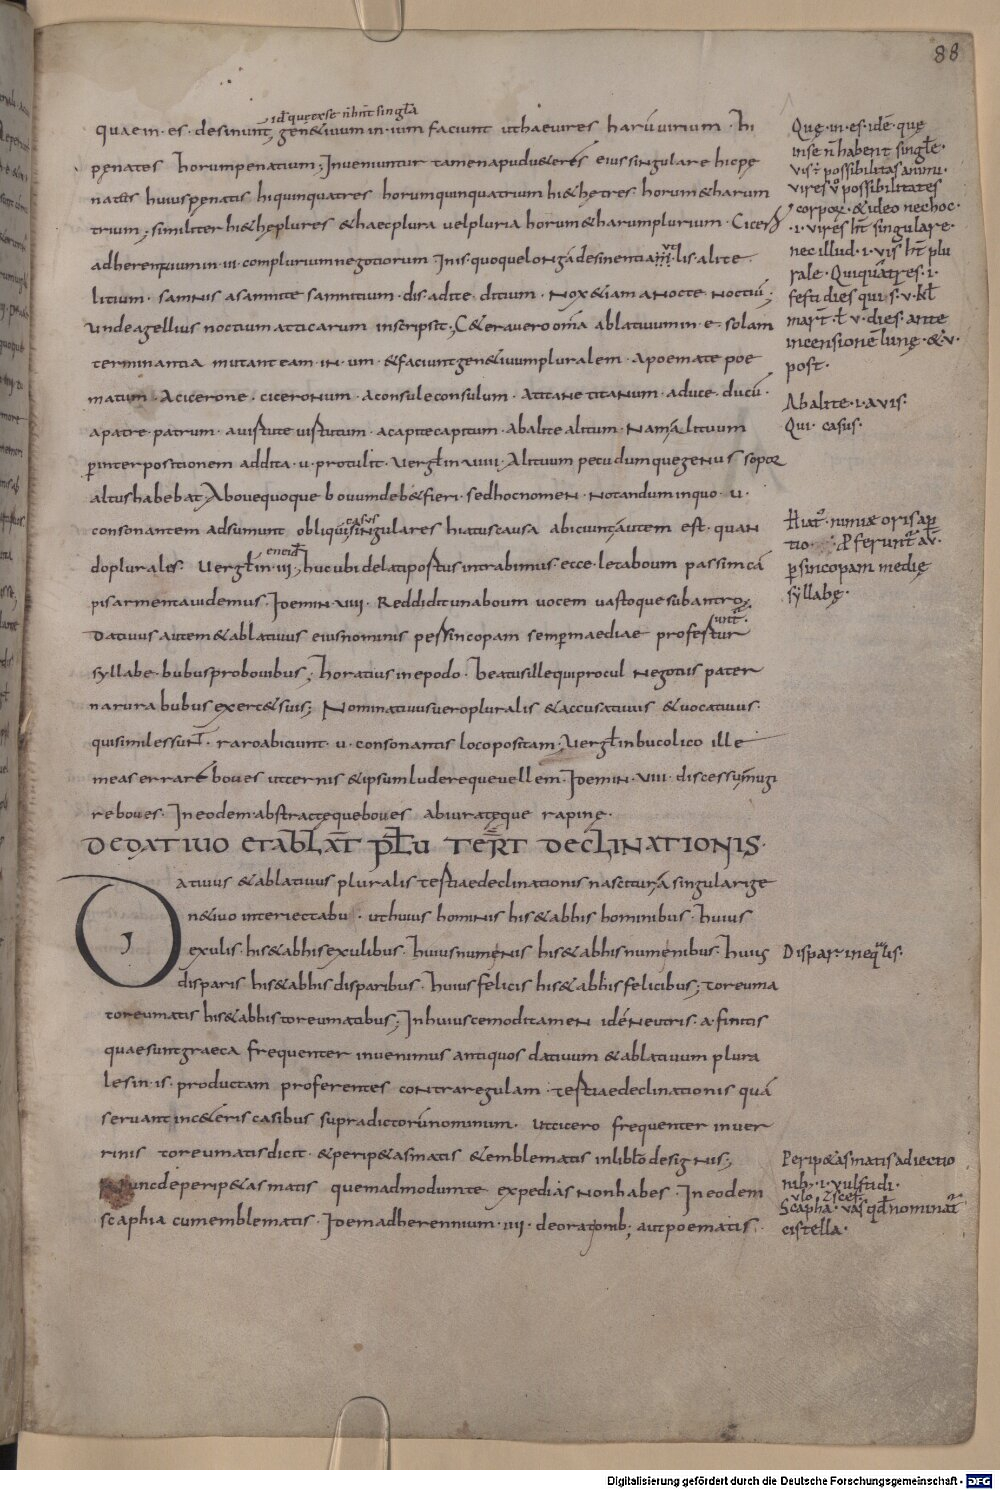 88
id quę ex se n̄ hn̄t singl̄a
quae in · es · desinunt, gen&iuum in · ium faciunt ut hae uires harū uirium · hi
penates horum penatium; Inueniuntur tamen apud u&erēs eius singulare hic pe
natis huius penatis hi quinquatres horum quinquatrum hi & hę tres · horum & harum
trium; similiter hi & hę plures & haec plura uel pluria horum & harum plurium · Cicero
ad herennium in · iii · complurium negotiorum In is · quoque longā desinentia · lis a lite
litium · samnis a samnite samnitium · dis a dite · ditium · Nox & iam a nocte noctiū;
unde agellius noctium atticarum inscripsit; C&era uero om̄a ablatiuum in · e · solam
terminantia mutant eam · in · um · & faciunt gen&iuum pluralem · A poemate poe
matum · A cicerone · ciceronum · A consule consulum · A titane titanum · a duce · ducū ·
a patre · patrum · a uirtute uirtutum · a capite capitum · Ab alite alitum · Nam alituum
p̱ interpositionem addita · u · protulit · Uergl̄ in · viiii · Alituum pecudumque genus sopor
altus habebat; A boue quoque bouum deb& fieri · sed hoc nomen · notandum in quo · u ·
casus
consonantem adsumunt obliqui singulares hiatus causa abiciunt, autem est · quan
eneid̄
do pluralis · Uergl̄ in · iii · huc ubi delati portus intrabimus · ecce · lęta boum passim cā
pis armenta uidemus · Idem in · viiii · Reddidit una boum uocem uastoque sub antro;
unt̄
Datiuus autem & ablatiuus eius nominis per sincopam semper mediae proferūtur
syllabe · bubus pro bouibus; horatius in epodo · beatus ille qui procul negotiis pater
na rura bubus exerc& suis; Nominatiuus uero pluralis & accusatiuus & uocatiuus ·
qui similes sunt · raro abiciunt · u · consonantis loco positam; Uergl̄ in bucolico ille
meas errare boues ut cernis & ipsum ludere que uellem · Idem in · viii · discessu mugi
re boues · In eodem abstractęque boues abiuratęque rapinę ·
DE DATIUO ET ABLAT̄ PLU TERT DECLINATIONIS ·
Datiuus & ablatiuus pluralis tertiae declinationis nascitur a singulari ge
n&iuo interiecta bu · ut huius hominis his & ab his hominibus · huius
exulis · his & ab his exulibus · huius numenis his & ab his numenibus · huius
disparis his & ab his disparibus · huius felicis his & ab his felicibus; toreuma
toreumatis his & ab his toreumatibus; In huiuscemodi tamen idē neutris · a · finitis
quae sunt graeca frequenter inuenimus antiquos datiuum & ablatiuum plura
les in · is · productam proferentes contra regulam · tertiae declinationis quā
seruant in c&eris casibus supradictorū nominum · Ut cicero frequenter in uer
rinis toreumatis dicit · & perip&asmatis & emblematis in libro de signis;
Nunc de perip&asmatis quemadmodum te expedias non habes · In eodem
scaphia cum emblematis · Idem ad herennium · iiii · de oratorib; aut poematis
Quę · in · es · idē · quę
in se n̄ habent singl̄e ·
vis · r̄ possibilitas animi ·
vires v̊ possibilitates
corporꝝ · & ideo nec hoc ·
· i · vires hn̄t singulare ·
nec illud · i · vis hn̄t plu
rale · Quīquatres · i ·
festi dies qui s̄ · v · kl̄
mart̄ · l̄ · v · dies · ante
incensionē lunę · & · v ·
post ·
Ab alite · i · avis ·
Qui · casus ·
Hiat᷒ · nimia oris ap̱
tio · Proferunt̄ av̄ ·
p̱ sincopam medię
syllabę ·
Dispar · inequalis ·
Perip&asmatis adiectio
nib; · i · vulsudi ·
Scapha · vas qd̄ nominat̄
cistella ·
Digitalisierung gefördert durch die Deutsche Forschungsgemeinschaft - DFG